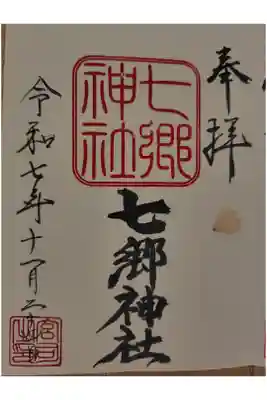 奉拝
七郷
神社
七郷神社
令和七年十一月二
宮司